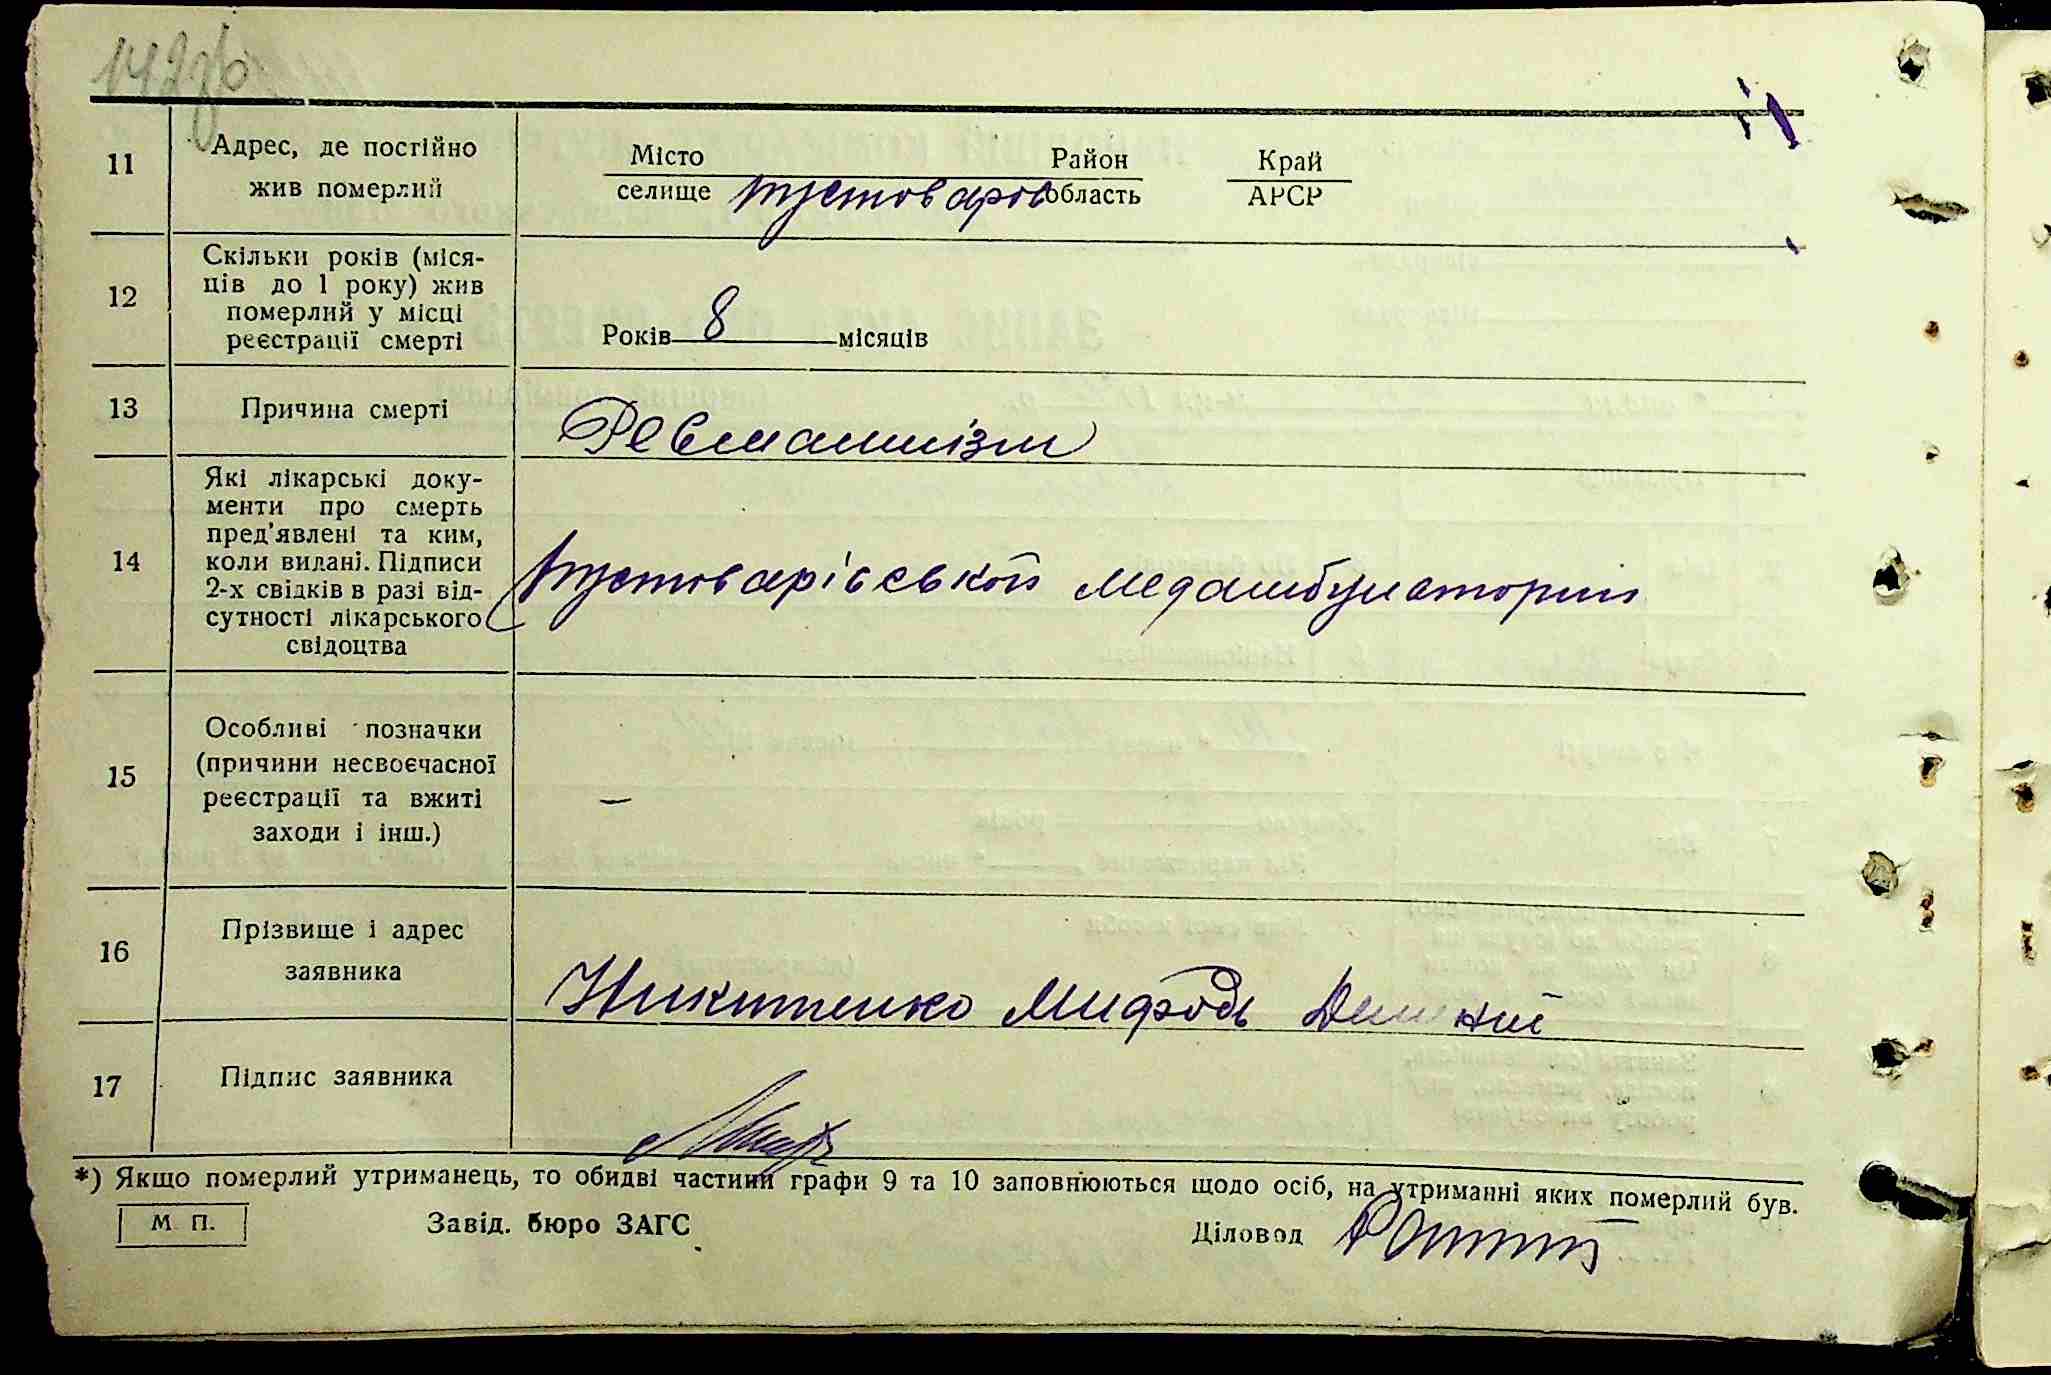 142зв
11 Адрес, де постійно жив померлий
Місто Район Край
селище Пустоваров область АРСР
12 Скільки років (міся-
ців до 1 року) жив
померлий у місці
реєстрації смерті
Років 8 місяців
13 Причина смерті Ревматизм
14 Які лікарські доку-
менти про смерть
пред'явлені та ким,
коли видані. Підписи
2-х свідків в разі від-
сутності лікарського
свідоцтва
Пустоварівської медамбулатории
15 Особливі позначки
(причини несвоєчасної
реєстрації та вжиті
заходи і інш.)
—
16 Прізвище і адрес
заявника
Никитенко Мифодь
17 Підпис заявника
*) Якщо померлий утриманець, то обидві частини графи 9 та 10 заповнюються щодо осіб, на утриманні яких померлий був.
М. П. Завід. бюро ЗАГС Діловод